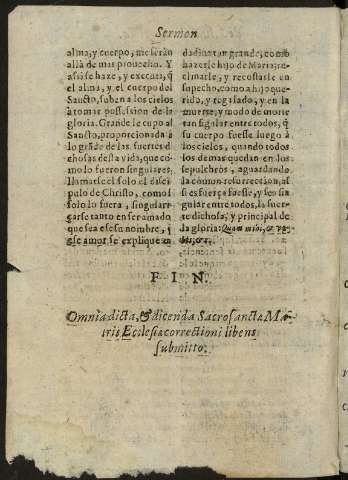 Sermon
alma, y cuerpo, me serán
allà de mas prouecho. Y
assi se haze, y executa, q̃
el alma, y el cuerpo del
Sancto, suben a los cielos
à tomar possession de la
gloria. Grande le cupo al
Sancto, proporcionada à
lo grãde de las suertes d
chosas desta vida, que có-
mo lo fueron singulares,
llamarse el solo el disci
pulo de Christo, como si
solo lo fuera, singulari-
garse tanto en ser amado
que sea esse su nombre, i
ese amor se explique en
dadiua tan grande, como
hazerse hijo de Maria, re-
clinarse, y recostarse en
su pecho, como a hijo que-
rido, y regalado, y en la
muerte, y modo de morir
tan sigular entre todos, q̃
su cuerpo fuesse luego à
los cielos, quando todos
los demas quedan en los
sepulchros, aguardando
la común resurreccion, as-
si es fuerça fuesse, y sea sin
gular entre todos, la suer-
te dichosa, y principal de
la gloria: Quam mihi, & vo-
bis, &c.
FIN.
Omnia dicta, & dicenda Sacrosanctæ Ma-
tris Ecclesiæ correctioni libens
submitto.